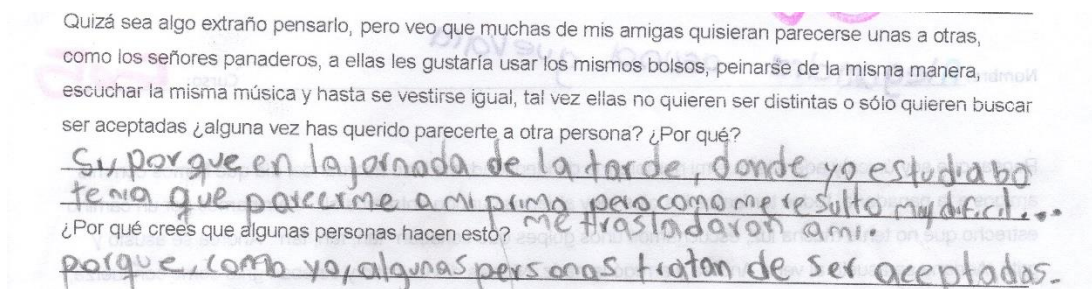 Quizá sea algo extraño pensarlo, pero veo que muchas de mis amigas quisieran parecerse unas a otras,
como los señores panaderos, a ellas les gustaría usar los mismos bolsos, peinarse de la misma manera,
escuchar la misma música y hasta se vestirse igual, tal vez ellas no quieren ser distintas o sólo quieren buscar
ser aceptadas ¿alguna vez has querido parecerte a otra persona? ¿Por qué?
Sy, porque en la jornada de la tarde, donde yo estudiaba
tenia que parecerme a mi primo pero como me resulto muy dificil...
me trasladaron a mi.
¿Por qué crees que algunas personas hacen esto?
porque como yo, algunas personas tratan de ser aceptadas.